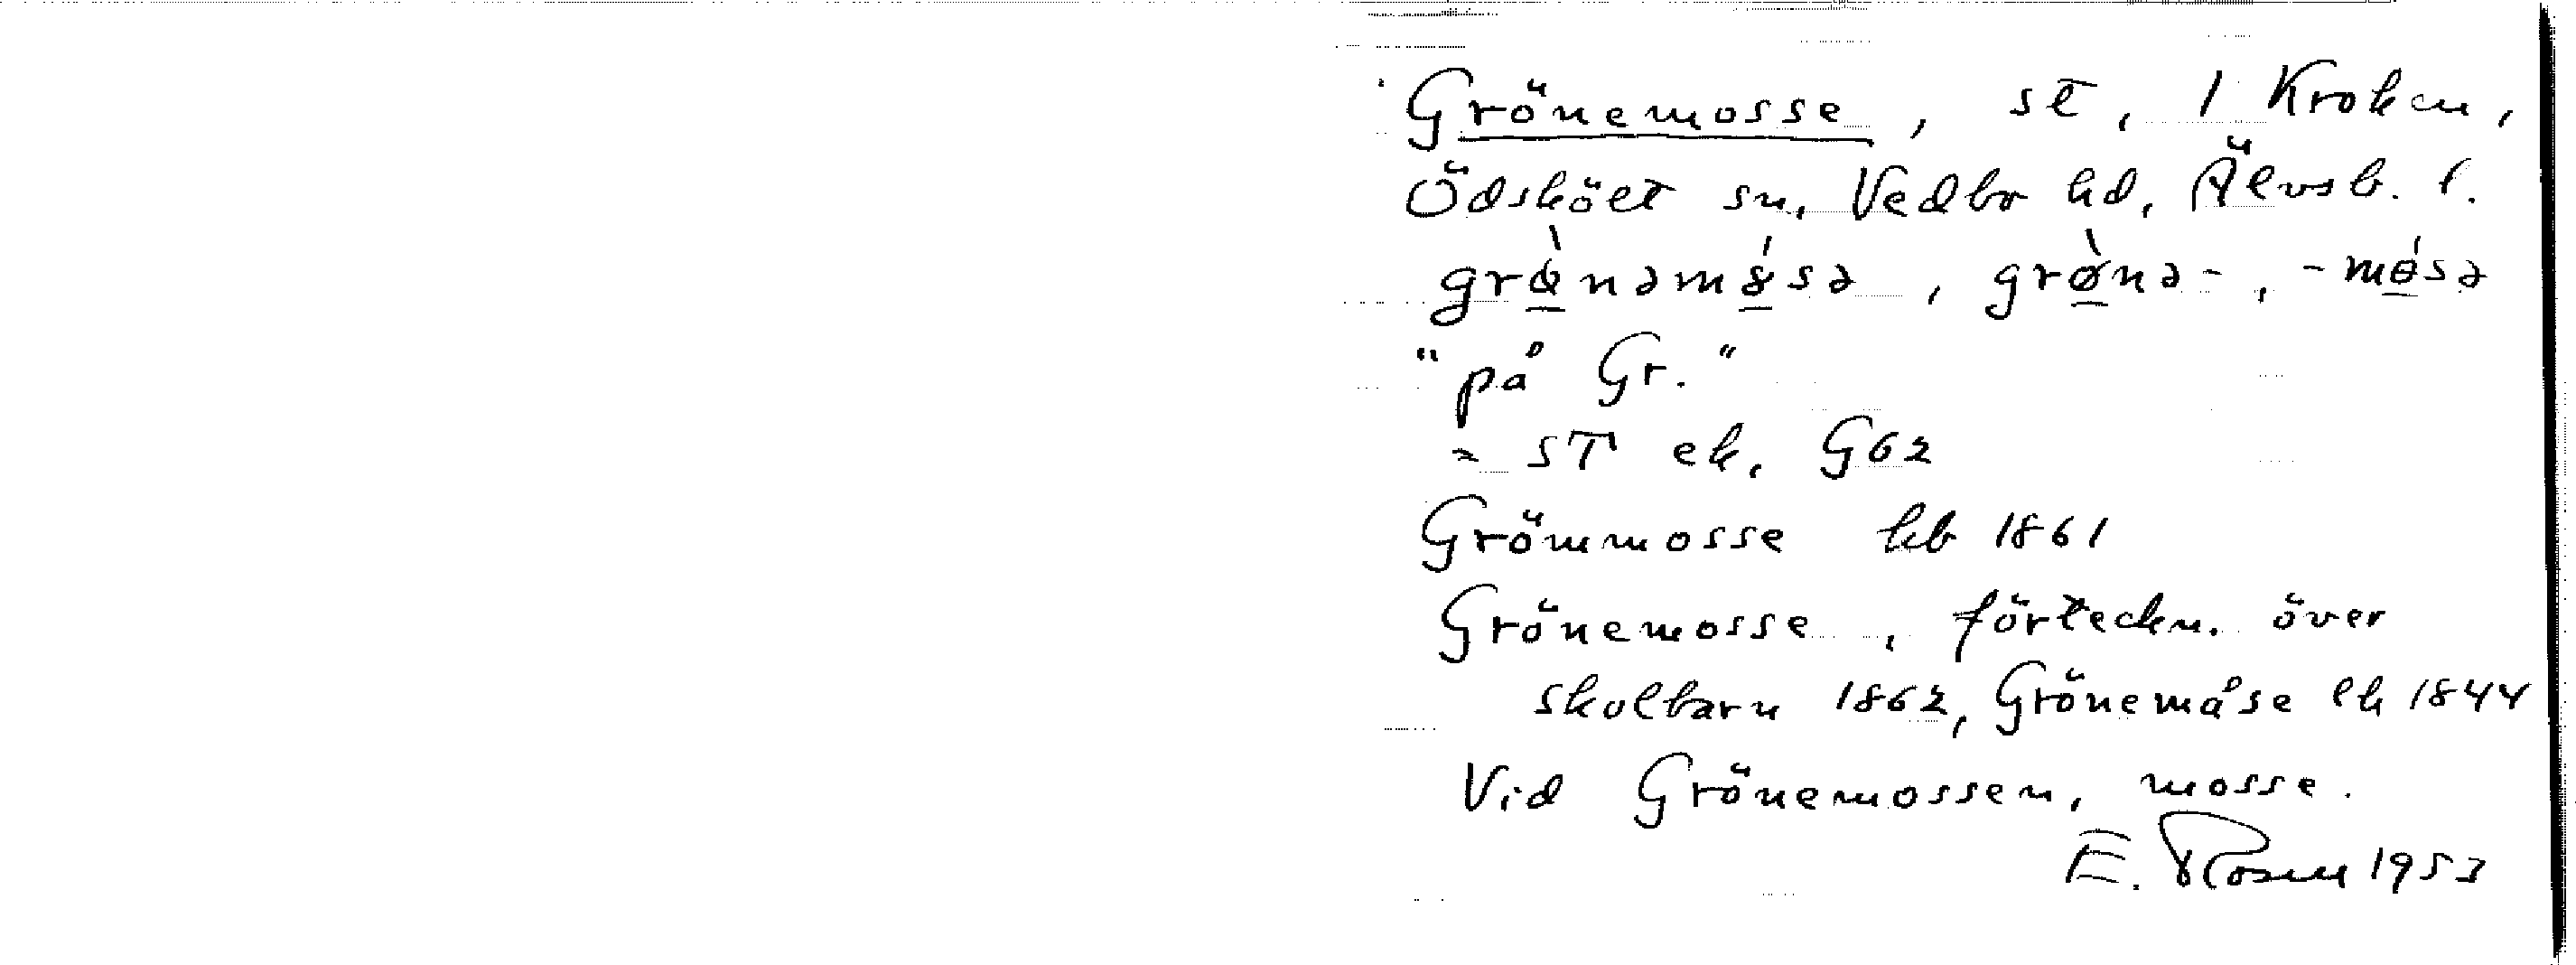 Grönemosse, st, 1 Kroken,
Ödskölt sn, Vedbo hd, Älvsb. l.
grø̀nəmǿsə, grø̀nə-, -mɵ́sə
"på Gr."
= ST ek. G62
Grömmosse hb 1861
Grönemosse, förteckn. över
skolbarn 1862, Grönemåse lh 1844
Vid Grönemossen, mosse.
E. Rosell 1953